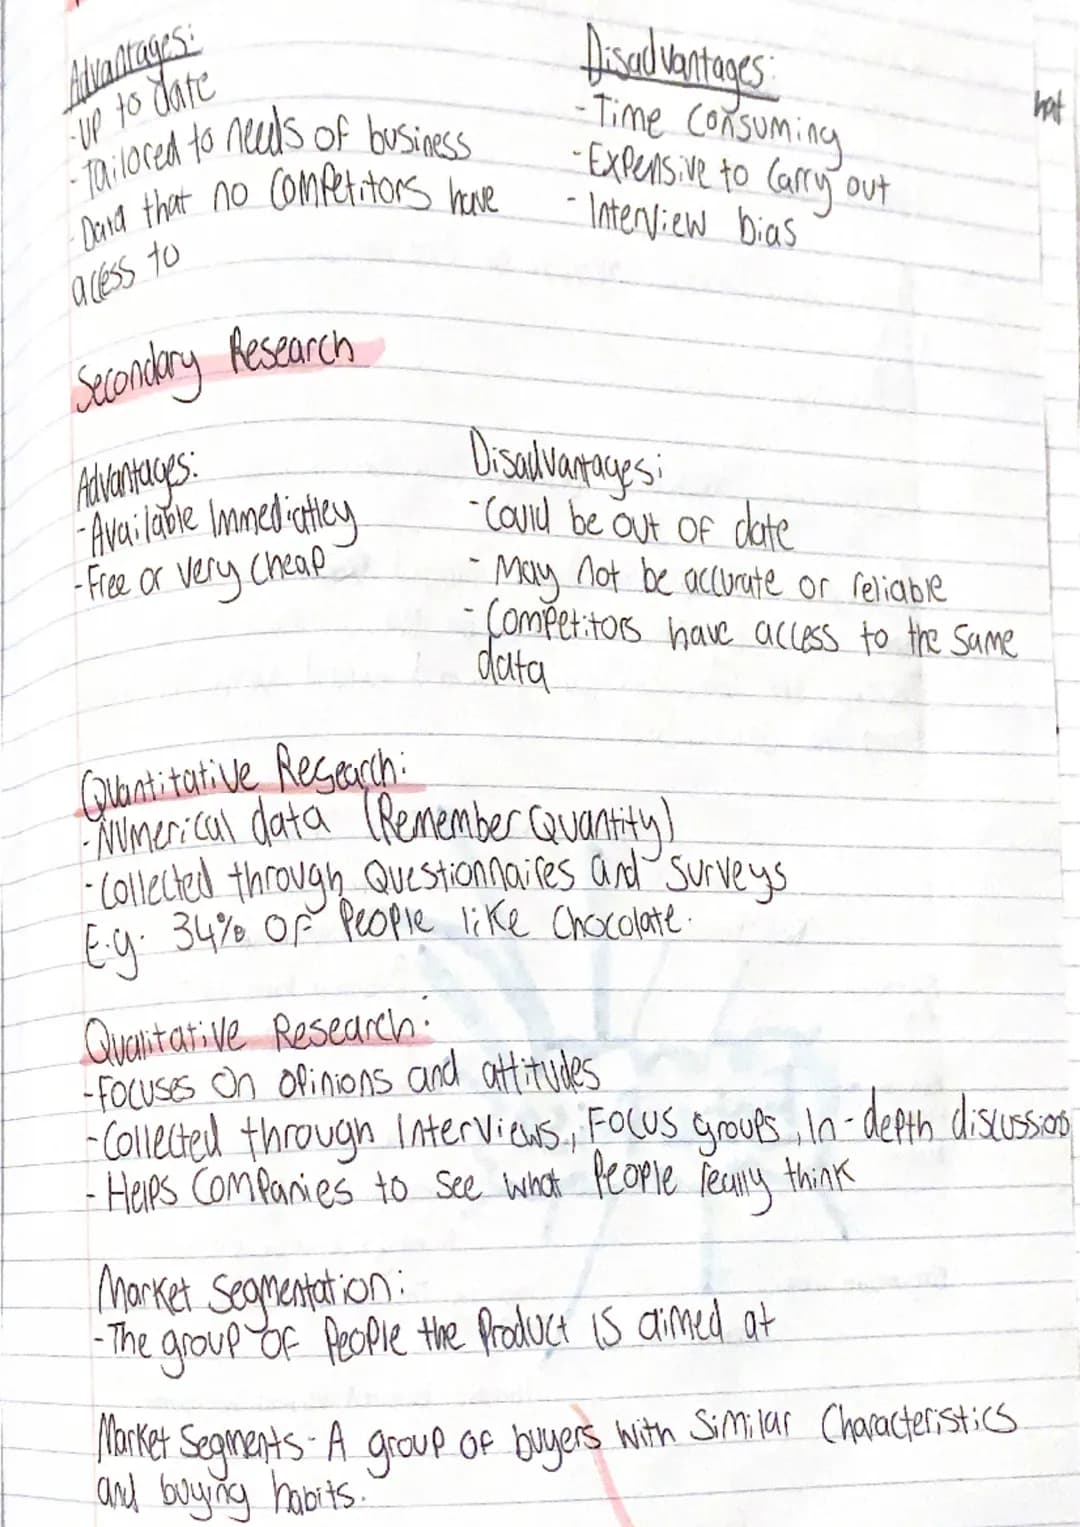 Advantages:
- up to date
- Tailored to needs of business
- Data that no competitors have
acess to
Disadvantages:
- Time consuming
- Expensive to carry out
- Interview bias
hat
Secondary Research
Advantages:
- Available Immediatley
- Free or very cheap
Disadvantages:
- Could be out of date
- May not be accurate or reliable
- Competitors have access to the same
data
Quantitative Research:
- Numerical data (Remember Quantity)
- Collected through Questionnaires and surveys
E.g. 34% of People like Chocolate.
Qualitative Research:
- Focuses on opinions and attitudes
- Collected through Interviews, Focus groups, In-depth discussions
- Helps Companies to see what People really think
Market Segmentation:
- The group of People the Product is aimed at
Market Segments - A group of buyers with Similar Characteristics
and buying habits.